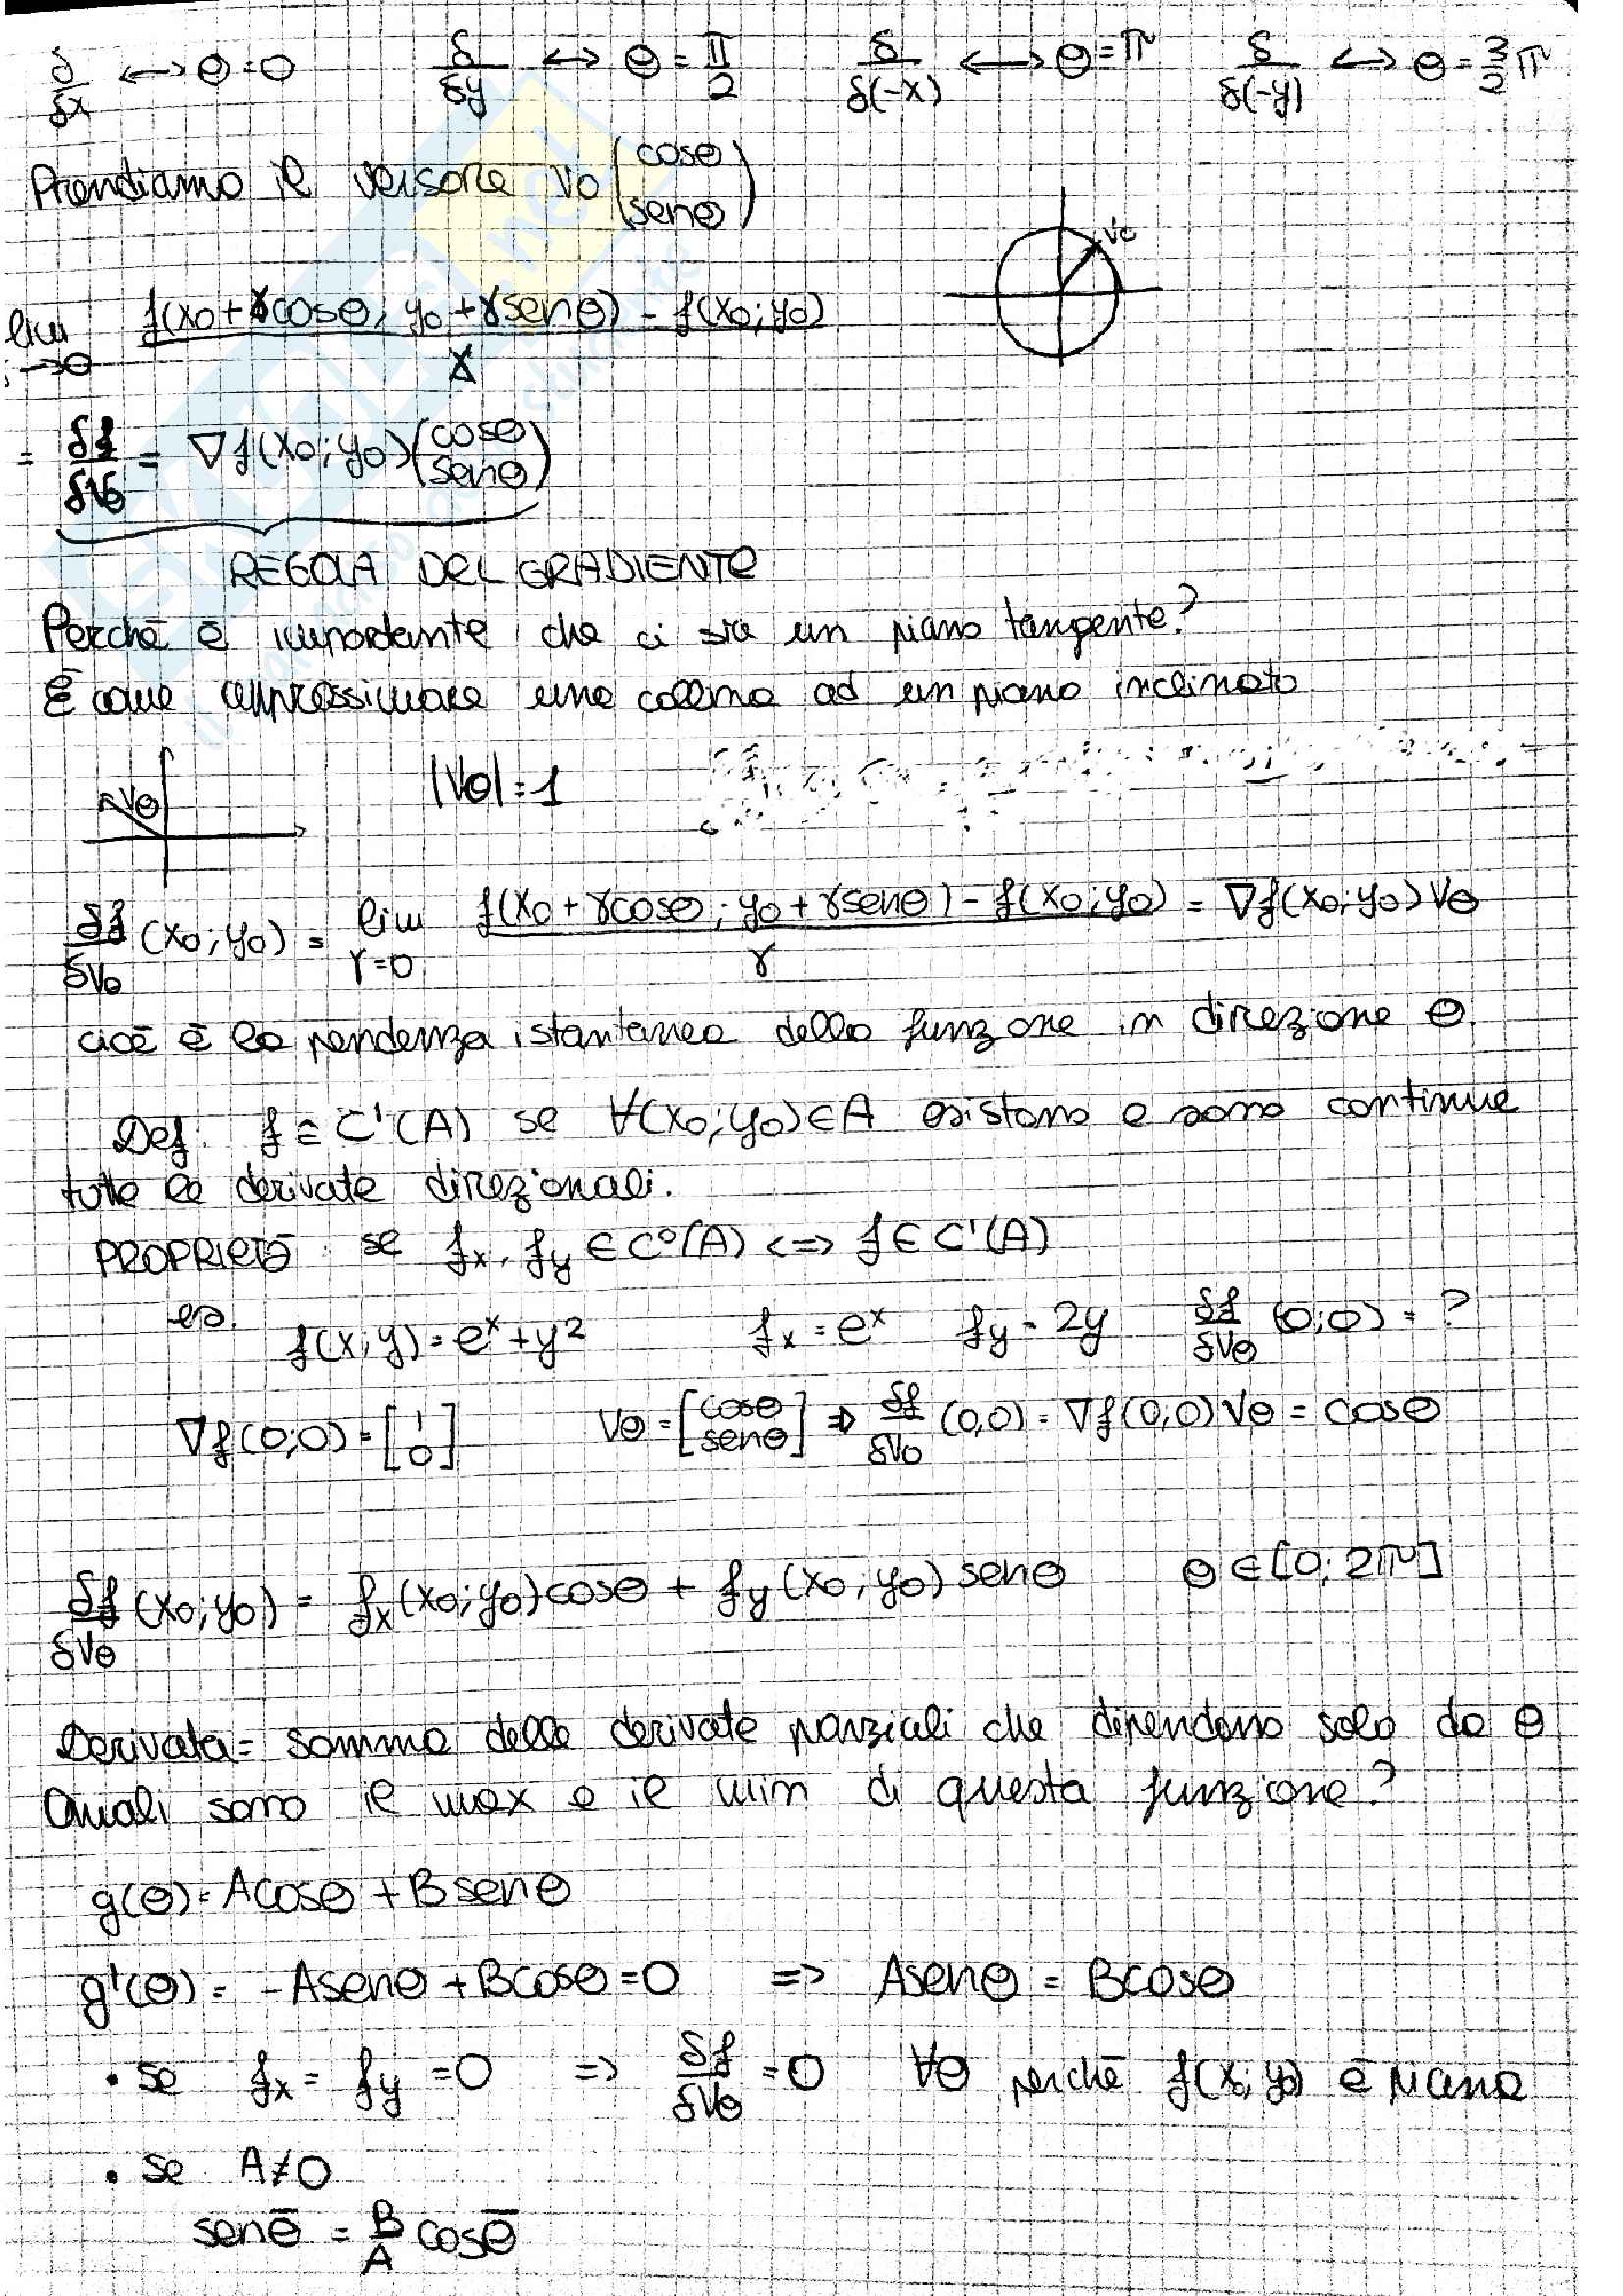 δ/δx ↔ θ=0   δ/δy ↔ θ=π/2   δ/δ(-x) ↔ θ=π   δ/δ(-y) ↔ θ=3/2π
Prendiamo il versore Vθ (cosθ senθ)
Vθ
lim →0 f(x0+γcosθ; y0+γsenθ) - f(x0;y0) / γ
= δf/δVθ = ∇f(x0;y0)(cosθ senθ)
REGOLA DEL GRADIENTE
Perchè è importante che ci sia un piano tangente?
È come approssimare una collina ad un piano inclinato
Vθ   |Vθ|=1
δf/δVθ (x0;y0) = lim γ=0 f(x0+γcosθ; y0+γsenθ) - f(x0;y0) / γ = ∇f(x0;y0)Vθ
cioè è la pendenza istantanea della funzione in direzione θ
Def: f∈C'(A) se ∀(x0;y0)∈A esistono e sono continue
tutte le derivate direzionali.
PROPRIETÀ: se fx, fy ∈C⁰(A) <=> f∈C'(A)
es. f(x,y)=e^x+y²   fx=e^x   fy=2y   δf/δVθ (0;0)=?
∇f(0;0)=[1 0]   Vθ=[cosθ senθ] => δf/δVθ (0,0)=∇f(0,0)Vθ=cosθ
δf/δVθ (x0;y0) = fx(x0;y0)cosθ + fy(x0;y0)senθ   θ∈[0;2π]
Derivata= somma delle derivate parziali che dipendono solo da θ
Quali sono il max e il min di questa funzione?
g(θ)=Acosθ+Bsenθ
g'(θ)= -Asenθ+Bcosθ=0   =>   Asenθ=Bcosθ
• se fx=fy=0   =>   δf/δVθ=0   ∀θ perchè f(x0;y0) è piana
• se A≠0
senθ̅ = B/A cosθ̅